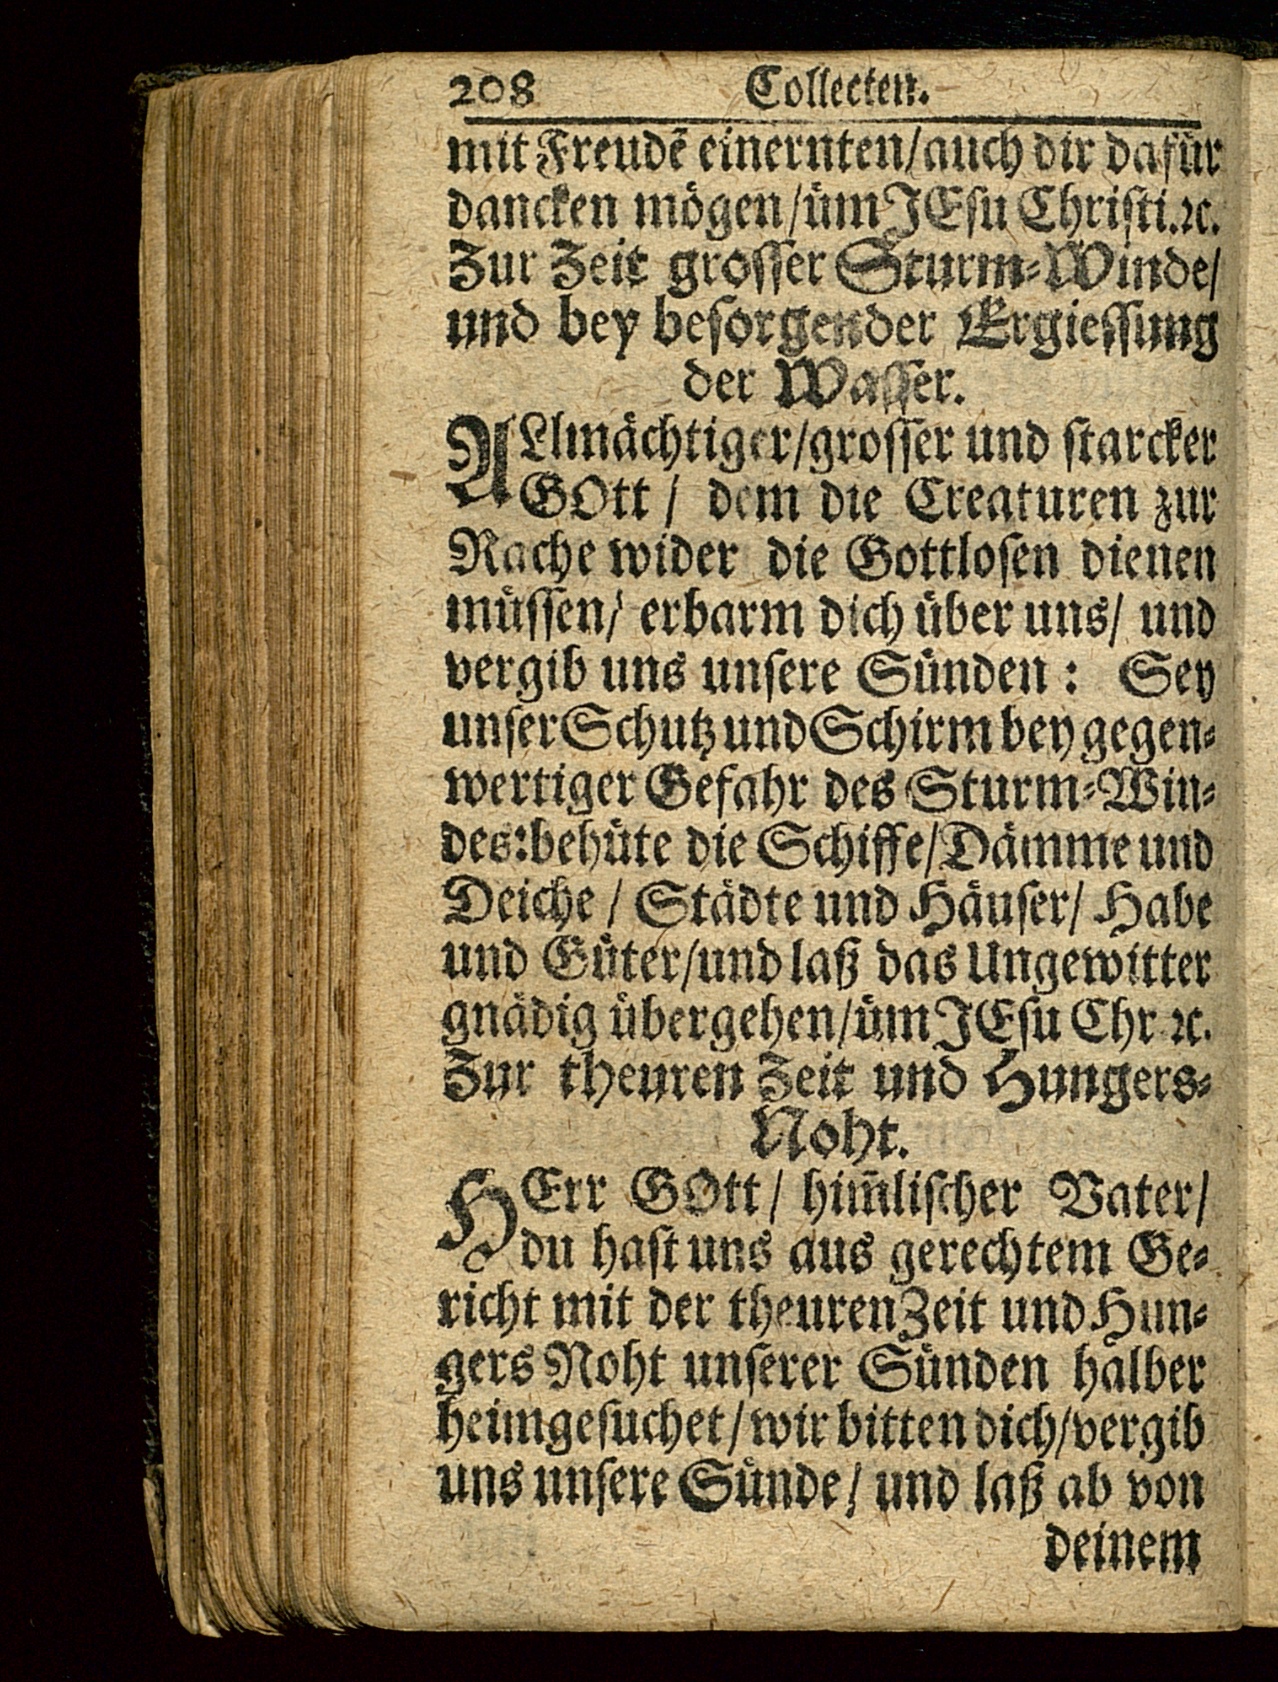 208 Collecten.
mit Freudẽ einernten/auch dir dafür
dancken mögen/üm JEsu Christi.ꝛc.
Zur Zeit grosser Sturm-Winde/
und bey besorgender Ergiessung
der Wasser.
ALlmächtiger/grosser und starcker
GOtt / dem die Creaturen zur
Rache wider die Gottlosen dienen
müssen/ erbarm dich über uns/ und
vergib uns unsere Sünden: Sey
unser Schutz und Schirm bey gegen-
wertiger Gefahr des Sturm-Win-
des:behüte die Schiffe/Dämme und
Deiche / Städte und Häuser/ Habe
und Güter/und laß das Ungewitter
gnädig übergehen/üm JEsu Chr ꝛc.
Zur theuren Zeit und Hungers-
Noht.
HErr GOtt/ him̃lischer Vater/
du hast uns aus gerechtem Ge-
richt mit der theuren Zeit und Hun-
gers Noht unserer Sünden halber
heimgesuchet/wir bitten dich/vergib
uns unsere Sünde/ und laß ab von
deinem